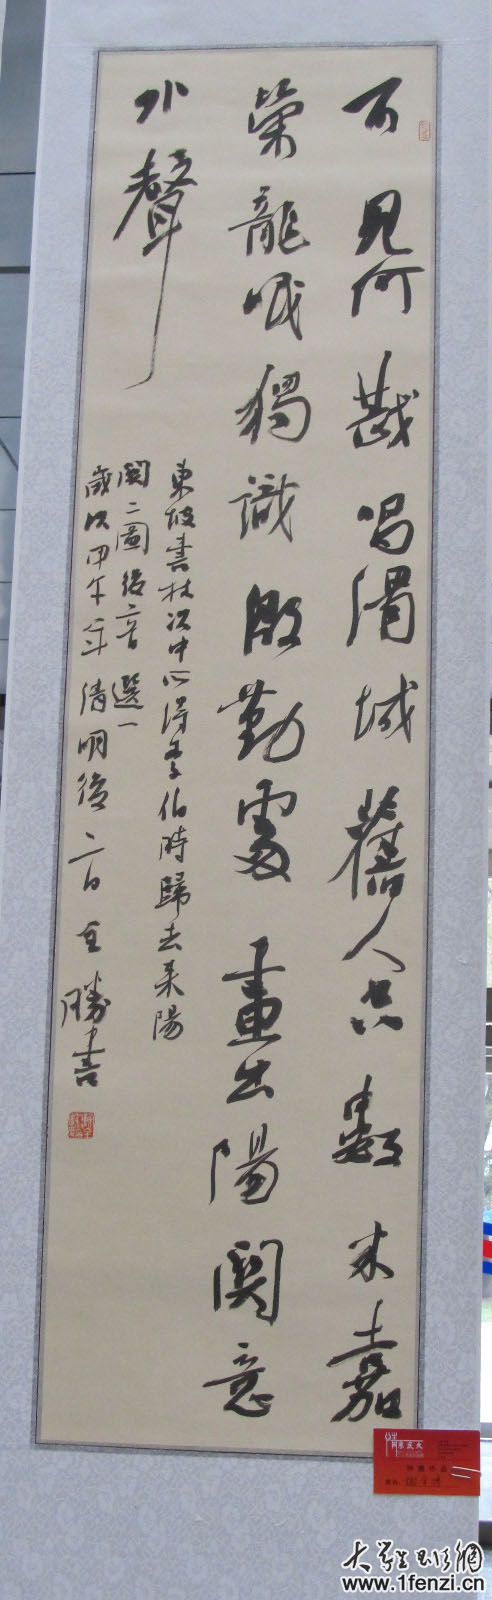 不見何戡唱渭城舊人空數米嘉
榮龍眠獨識殷勤處畫出陽關意
外聲
東坡書林次中所得李伯時歸去来陽
關二圖後二首選一
歲次甲午年清明後二日勝書
大学生书法网
www.1fenzi.cn